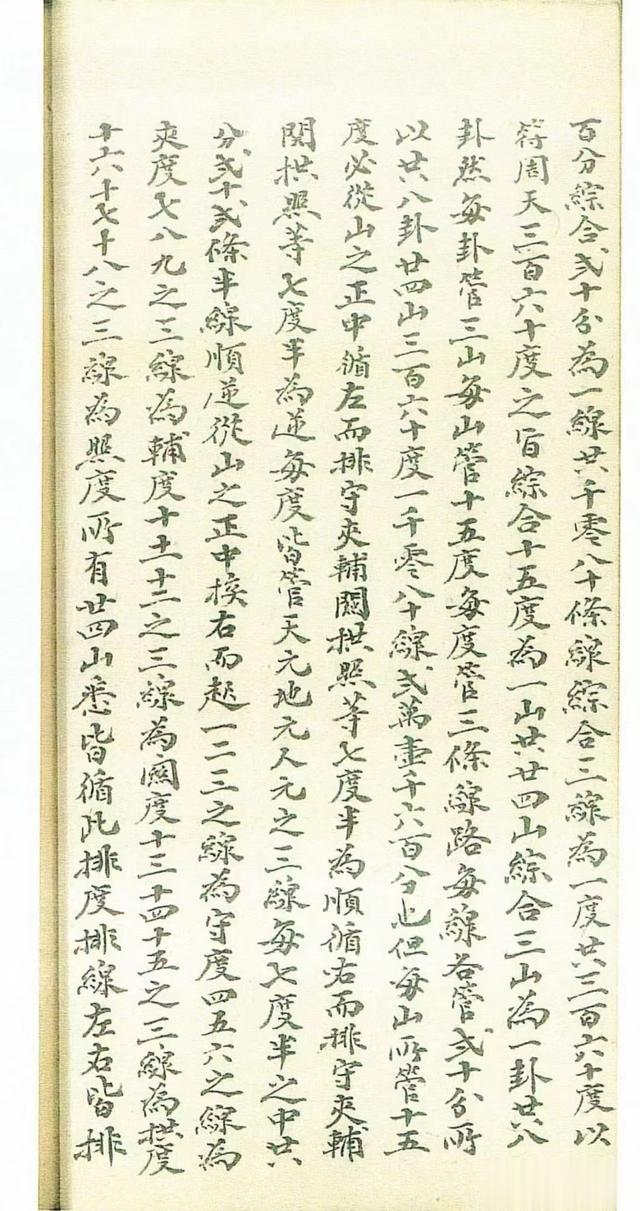 百分綜合弍十分為一線共千零八十條線綜合三線為一度共三百六十度以
符周天三百六十度之旨綜合十五度為一山共廿四山綜合三山為一卦共八
卦然每卦管三山每山管十五度每度管三條線路每線各管弍十分所
以共八卦廿四山三百六十度一千零八十線弍萬壹千六百分也但每山所管十五
度必從山之正中循左而排守夾輔関拱照等七度半為順循右而排守夾輔
関拱照等七度半為逆每度皆管天元地元人元之三線每七度半之中共
分弍十弍條半線順逆從山之正中挨右而起一二三之線為守度四五六之線為
夾度七八九之三線為輔度十十一十二之三線為関度十三十四十五之三線為拱度
十六十七十八之三線為照度所有廿四山悉皆循此排度排線左右皆排